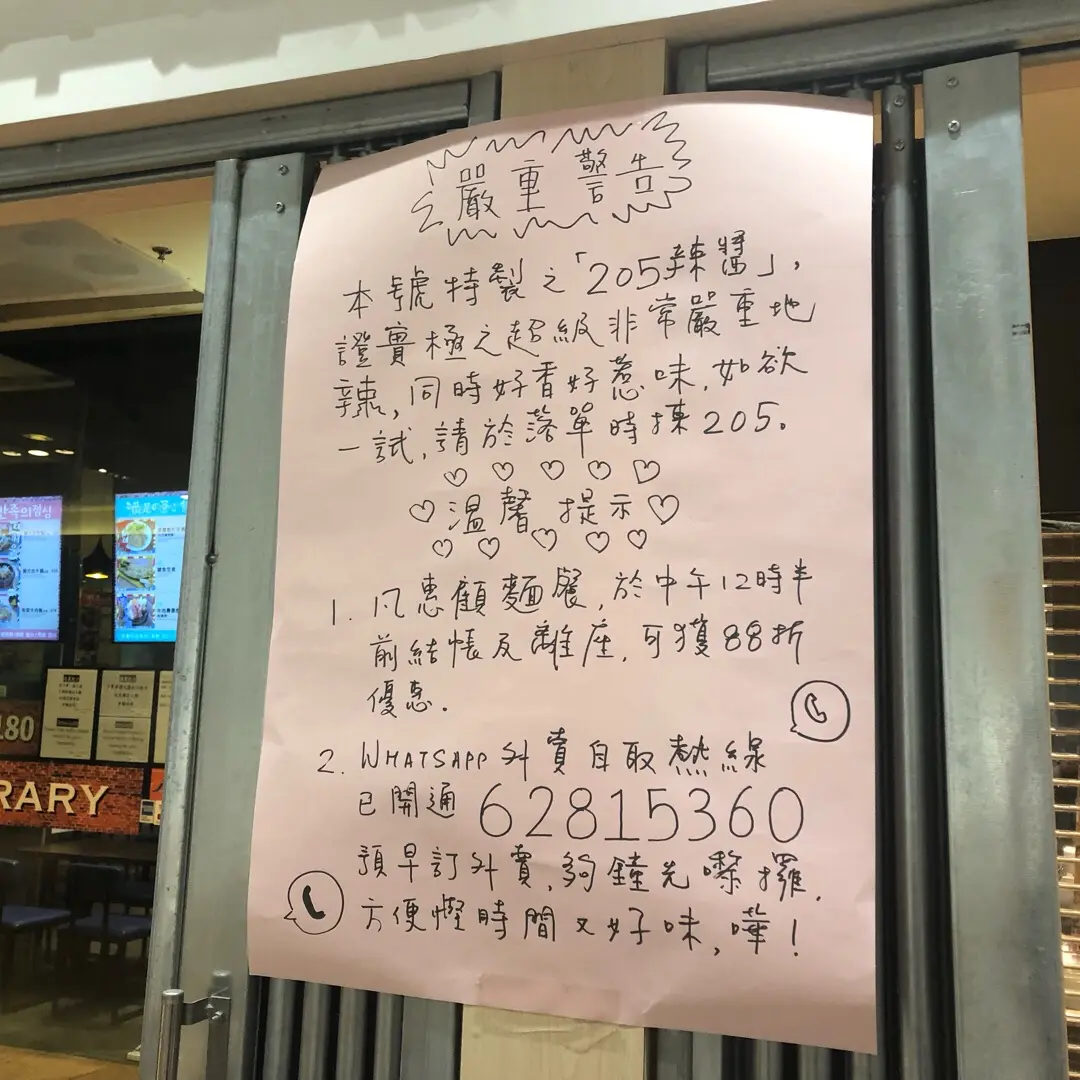 嚴重警告
本號特製之「205辣醬」,
證實極之超級非常嚴重地
辣,同時好香好惹味,如欲
一試,請於落單時揀205.
溫馨提示
1. 凡惠顧麵餐,於中午12時半
前結帳及離座,可獲88折
優惠.
2. WHATSAPP外賣自取熱線
已開通 62815360
預早訂外賣,夠鐘先嚟攞,
方便慳時間又好味,嘩!
만족의점심
180
RARY